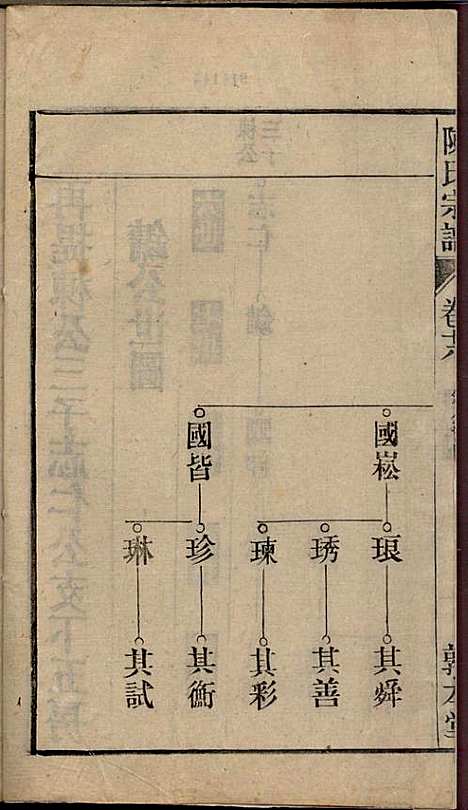 陳氏宗譜
卷十六
敦本堂
國崧
國皆
琅
琇
㻋
珍
琳
其舜
其善
其彩
其衡
其試